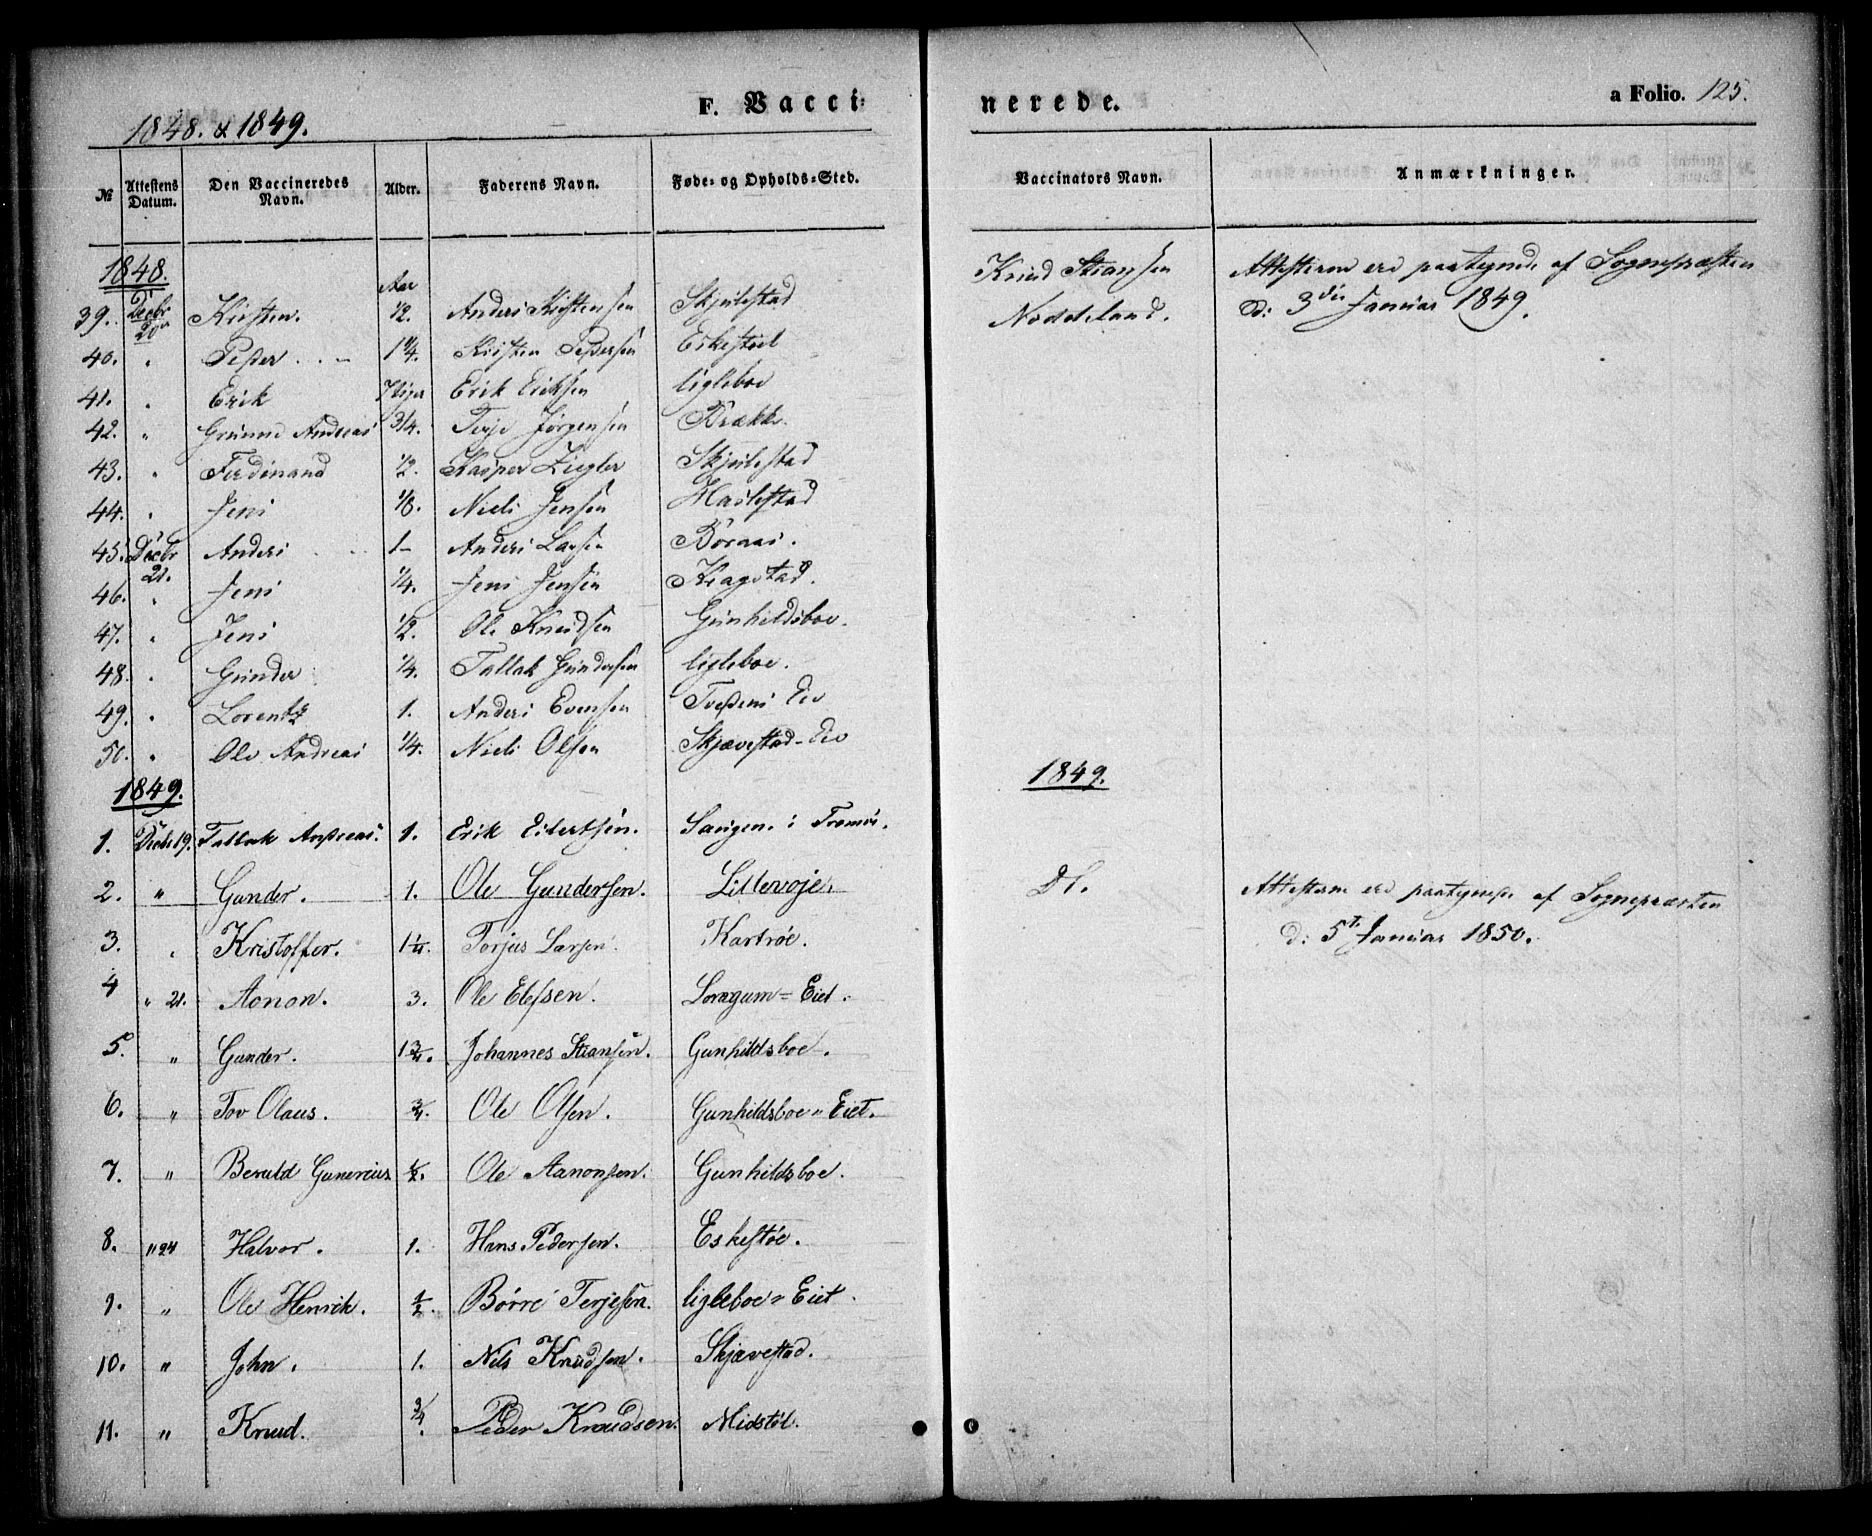 1848. & 1849.
F. Vacci-
nerede.
a Folio. 125.
№ Attestens Datum. Den Vaccineredes Navn. Alder. Faderens Navn. Føde- og Opholds-Sted. Vaccinators Navn. Anmærkninger.
1848. Aar Knud Stiansen Attesterne ere paategnede af Sognepræsten
39. Decbr 20de Kristen. 1/2. Anders Kristensen Skjulestad Noddeland. d: 3die Januar 1849.
40. " Peder 1 1/4. Kristen Pedersen Eskestøel
41. " Erik Erik Eriksen ligleboe
42. " Gunne Andreas 3/4. Terje Jørgensen Brække.
43. " Ferdinand 1/2. Kasper Ziegler Skjulestad
44. " Jens 1/8. Niels Jensen
45. Decbr 21. Anders 1- Anders Larsen Boraas.
46. " Jens 1/4. Jens Jensen Kragstad.
47. " Jens 1/2. Ole Knudsen Gunhildsboe.
48. " Gunder 1/4. Tallak Gundersen ligleboe.
49. " Lorentz 1. Anders Evensen Tvedens Eie
50. " Ole Andreas 1/4. Niels Olsen Skjævestad-Eie
1849. 1849.
1. Decbr 19. Tallak Andreas. 1. Erik Eilertsen. Sangen. i Tromøe.
2. " Gunder. 1. Ole Gundersen. Lillevoje. Dt. Attesterne ere paategnede af Sognepræsten
3. " Kristoffer. 1 1/4. Torjus Larsen. Kartrøe. d: 5te Januar 1850.
4 " 21. Aonon. 3. Ole Elefsen. Longum=Eiet.
5. " Gunder. 1 3/4. Johannes Stiansen. Gunhildsboe.
6. " Tov Olaus. 3/4. Ole Olsen. Gunhildsboe " Eiet.
7. " Berald Gunerius 1/2. Ole Aanonsen. Gunhildsboe.
8. " 24 Halvor. 1. Hans Pedersen. Eskestøe.
9. " Ole Henrik. 1/2. Børre Terjesen. ligleboe " Eiet.
10. " John. 1. Nels Knudsen. Skjævestad.
11. " Knud. 3/4. Peder Knudsen. Midstøl.